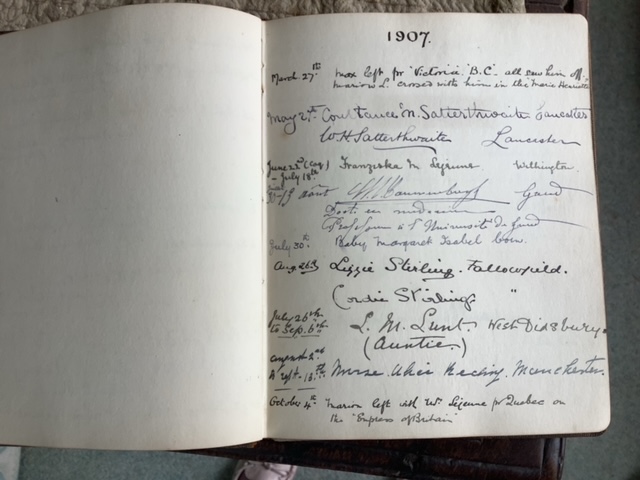 1907.
March 27th Max left for Victoria B.C. all saw him off.
Marion L. crossed with him in the Marie Henriette
May 2nd Constance N. Satterthwaite Lancaster
W H Satterthwaite Lancaster
June 22nd Franziska M Lejeune Withington
- July 18th
août Gand
Doct. en médecine
Professeur à l'Université de Gand
July 30th Baby Margaret Isabel born.
Aug. 26th Lizzie Stirling. Fallowfield.
Cordie Stirling "
July 26th
to Sep. 6th L. M. Lunt. West Didsbury.
(Auntie.)
August 2nd
Sept. 13th Nurse Alice Manchester.
October 4th Marion left with Wm Lejeune for Quebec on
the "Empress of Britain"